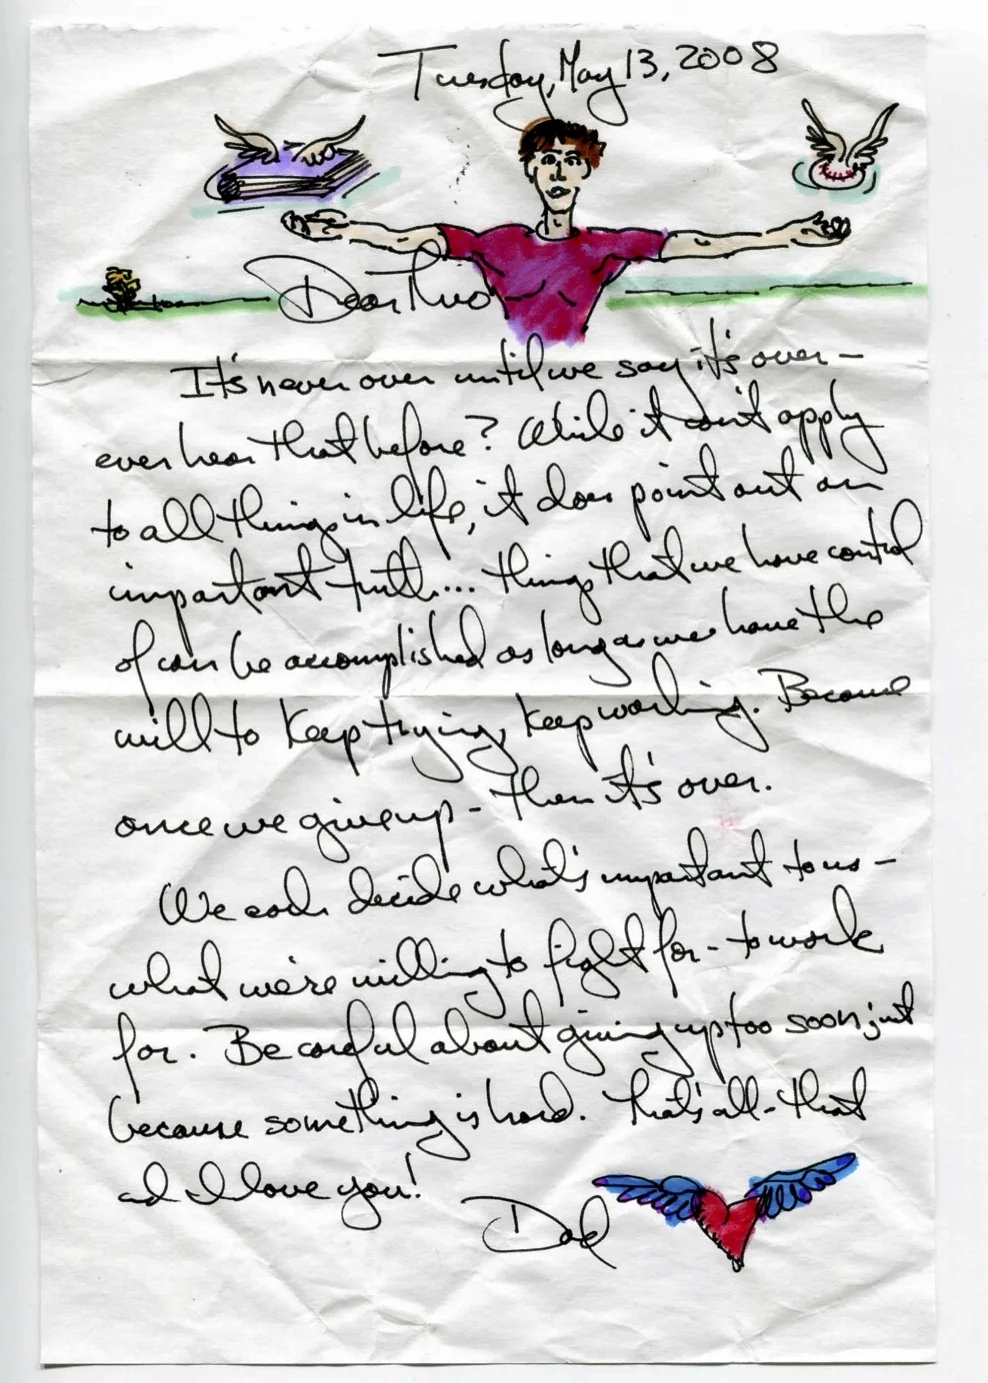 Tuesday, May 13, 2008
Dear Rio
It's never over until we say it's over –
ever hear that before? While it can't apply
to all things in life, it does point out an
important truth... things that we have control
of can be accomplished as long as we have the
will to keep trying, keep working. Because
once we give up – then it's over.
We each decide what's important to us –
what we're willing to fight for – to work
for. Be careful about giving up too soon just
because something is hard. That's all – that
and I love you!
Dad